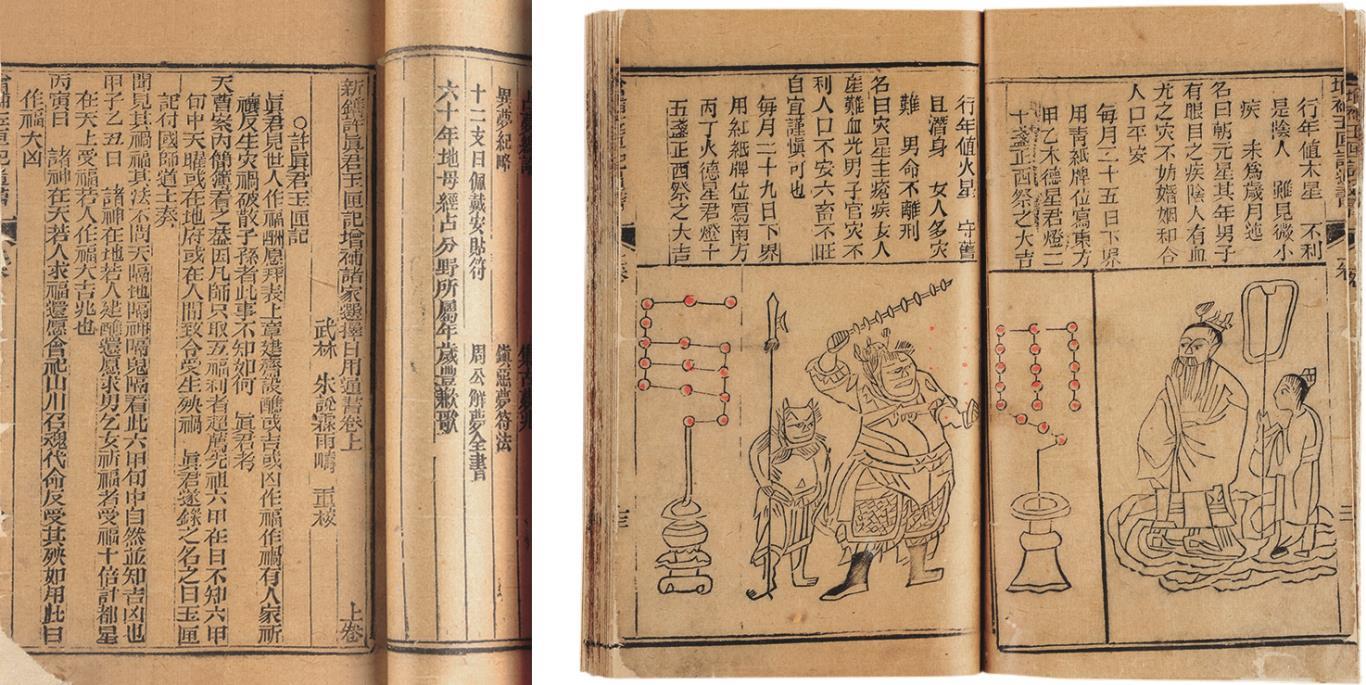 異夢紀略 鎮惡夢符法
十二支日佩戴安貼符 周公解夢全書
六十年地母經占分野所屬年歲豐歉歌
新鐫許眞君玉匣記增補諸家選擇日用通書卷上 上卷
武林 朱說霖雨疇 重
○許眞君玉匣記
眞君見世人作福酬愿拜表上章建齋設醮或吉或凶作福作禍有人家祈
禳反生灾禍破散子孫者此事不知如何 眞君考
天曹案內簡簿看之葢因凡師只取五福利者超薦先祖六甲在日不知六甲
旬中天曜或在地府或在人間致令受生殃禍 眞君遂錄之名之曰玉匣
記付國師道士奏
聞見其禍福其法不問天隔地隔神隔鬼隔看此六甲旬中自然並知吉凶也
甲子乙丑日 諸神在地若人建醮還愿求男乞女祈福者受福十倍計都星
在天上受福若人作福大吉兆也
丙寅日 諸神在天若人求福還愿會祀山川召魂代命反受其殃如用此日
作福大凶
行年值木星 不利
是陰人 雖見微小
疾 未爲歲月連
名曰朝元星其年男子
有眼目之疾陰人有血
光之灾不妨婚姻和合
人口平安
每月二十五日下界
用靑紙牌位寫東方
甲乙木德星君燈二
十盞正西祭之大吉
行年值火星 守舊
且潛身 女人多灾
難 男命不離刑
名曰灾星主瘡疾女人
產難血光男子官灾不
利人口不安六畜不旺
自宜謹慎可也
每月二十九日下界
用紅紙牌位寫南方
丙丁火德星君燈十
五盞正西祭之大吉